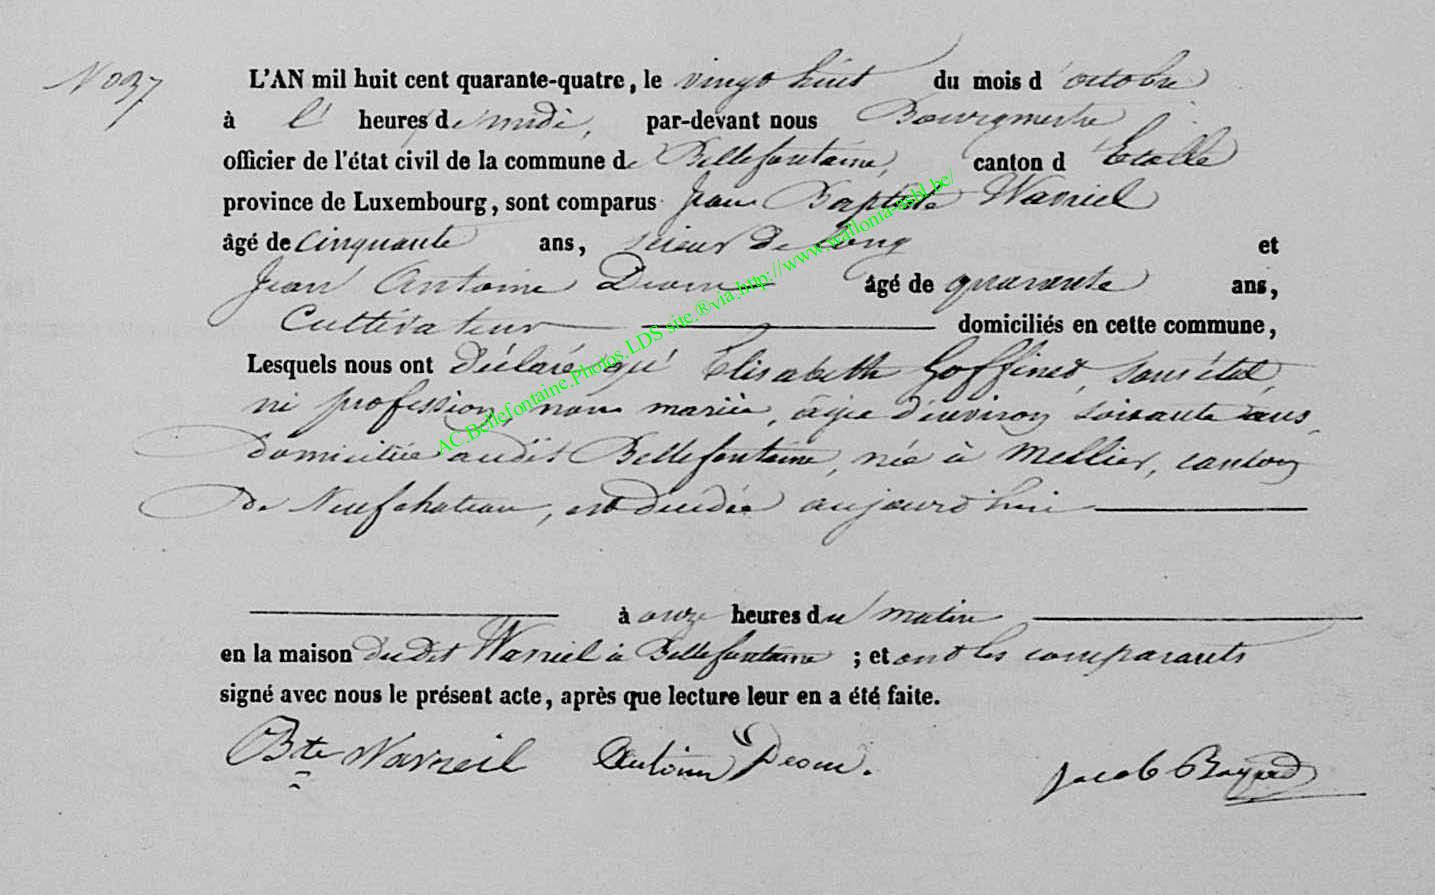 No 37
L'AN mil huit cent quarante-quatre, le vingt huit du mois d'octobre
à l' heures de midi, par-devant nous Bourgmestre
officier de l'état civil de la commune de Bellefontaine, canton d'Etalle
province de Luxembourg, sont comparus Jean Baptiste Warniel
âgé de cinquante ans, scieur de long et
Jean Antoine Deom âgé de quarante ans,
Cultivateur domiciliés en cette commune,
Lesquels nous ont déclaré qu' Elisabeth Goffinet, sans état,
ni profession, non mariée, âgée d'environ soixante ans,
domiciliée audit Bellefontaine, née à Mellier, canton
de Neufchateau, est décédée aujourd'hui
à onze heures du matin
en la maison dudit Warniel à Bellefontaine ; et ont les comparants
signé avec nous le présent acte, après que lecture leur en a été faite.
Bte Warneil Antoine Deom. Jacob Bayard
AC.Bellefontaine.Photos.LDS site.®via.http://www.wallonia-asbl.be/